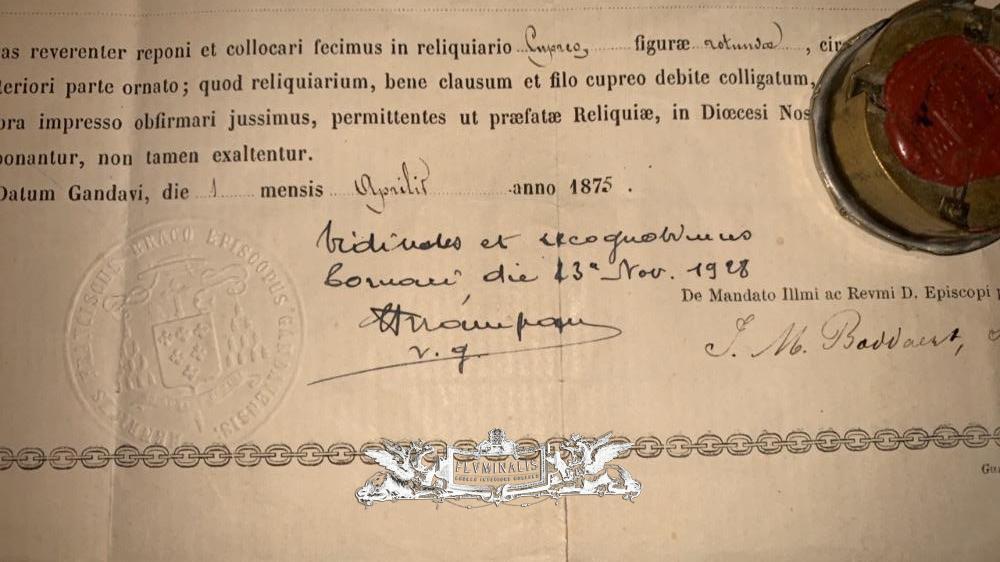 as reverenter reponi et collocari fecimus in reliquiario Cupreo, figuræ rotundæ, cir
teriori parte ornato; quod reliquiarium, bene clausum et filo cupreo debite colligatum,
pra impresso obfirmari jussimus, permittentes ut præfatæ Reliquiæ, in Diœcesi Nos
ponantur, non tamen exaltentur.
Datum Gandavi, die 1 mensis Aprilis anno 1875.
et recognovimus
die 13ª Nov. 1928
v. g.
De Mandato Illmi ac Revmi D. Episcopi
J. M. Boddaert,
EPISCOPUS
FLVMINALIS